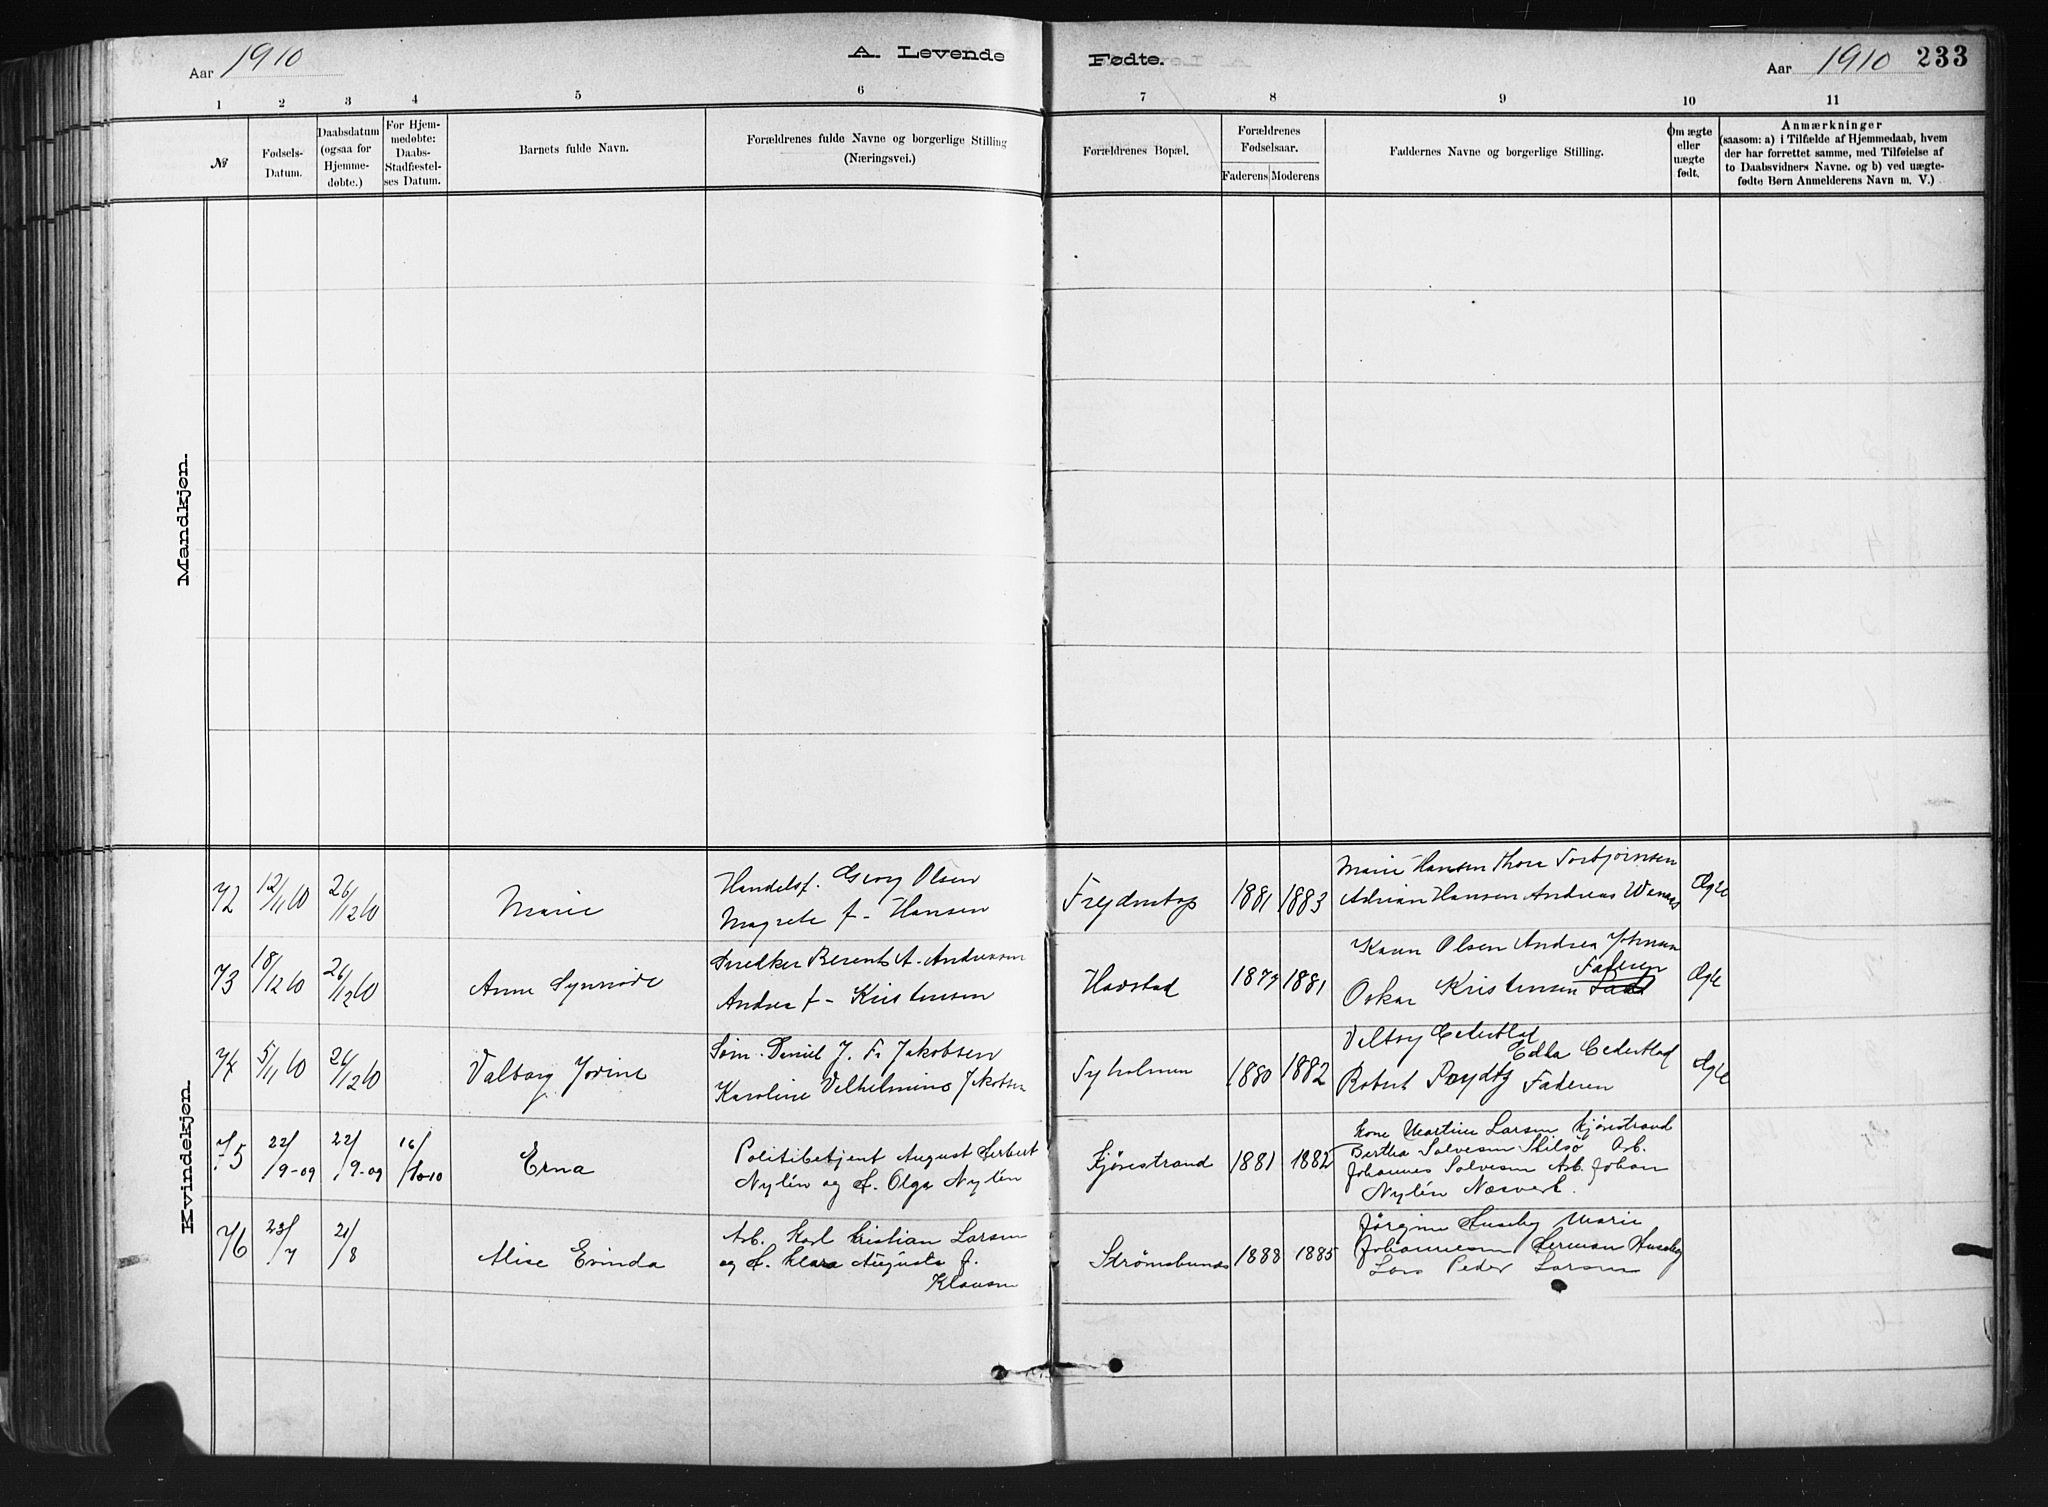 Aar 1910
A. Levende Fødte.
Aar 1910 233
1 2 3 4 5 6 7 8 9 10 11
№
Fødsels-Datum.
Daabsdatum (ogsaa for Hjemme-døbte.)
For Hjem-medøbte: Daabs-Stadfæstel-ses Datum.
Barnets fulde Navn.
Forældrenes fulde Navne og borgerlige Stilling (Næringsvei.)
Forældrenes Bopæl.
Forældrenes Fødselsaar.
Faderens Moderens
Faddernes Navne og borgerlige Stilling.
Om ægte eller uægte født.
Anmærkninger
(saasom: a) i Tilfælde af Hjemmedaab, hvem
der har forrettet samme, med Tilføielse af
to Daabsvidners Navne. og b) ved uægte-
fødte Børn Anmelderens Navn m. V.)
Mandkjøn.
Kvindekjøn.
72 12/11 10 26/12 10 Marie
Handelsf. Georg Olsen
Magrete f. Hansen
1881 1883
Marie Hansen Thora Torbjørnsen
Adrian Hansen Andreas
Ægte
73 18/12 10 26/12 10 Anne Synnøve
Snedker Berent A. Andreasen
Andrea f. Kristensen
Havstad 1881
Karen Olsen Andrea Johnsen
Oskar Kristensen Faderen
Ægte
74 5/11 10 26/12 10 Valborg Jovine
Søm. Daniel J. F. Jakobsen
Karoline Vilhelmine Jakobsen
Tyholmen 1880 1882
Cederblad
Edla Cederblad
Robert Faderen
Ægte
75 22/9-09 22/9-09 16/10-10 Erna
Politibetjent August Herbert
Nylén og H. Olga Nylén
Kjørestrand 1881 1882
Kone Martine Larsen Kjørestrand
Bertha Salvesen Skilsø Arb.
Johannes Salvesen Arb. Johan
Nylén Næsverk.
76 23/7 21/8 Alise Evinda
Arb. Karl Kristian Larsen
og H. Klara Augusta f.
Klausen
Strømsbunes 1888 1885
Jørgine Huseby Marie
Johannesen Herman Huseby
Lars Peder Larsen